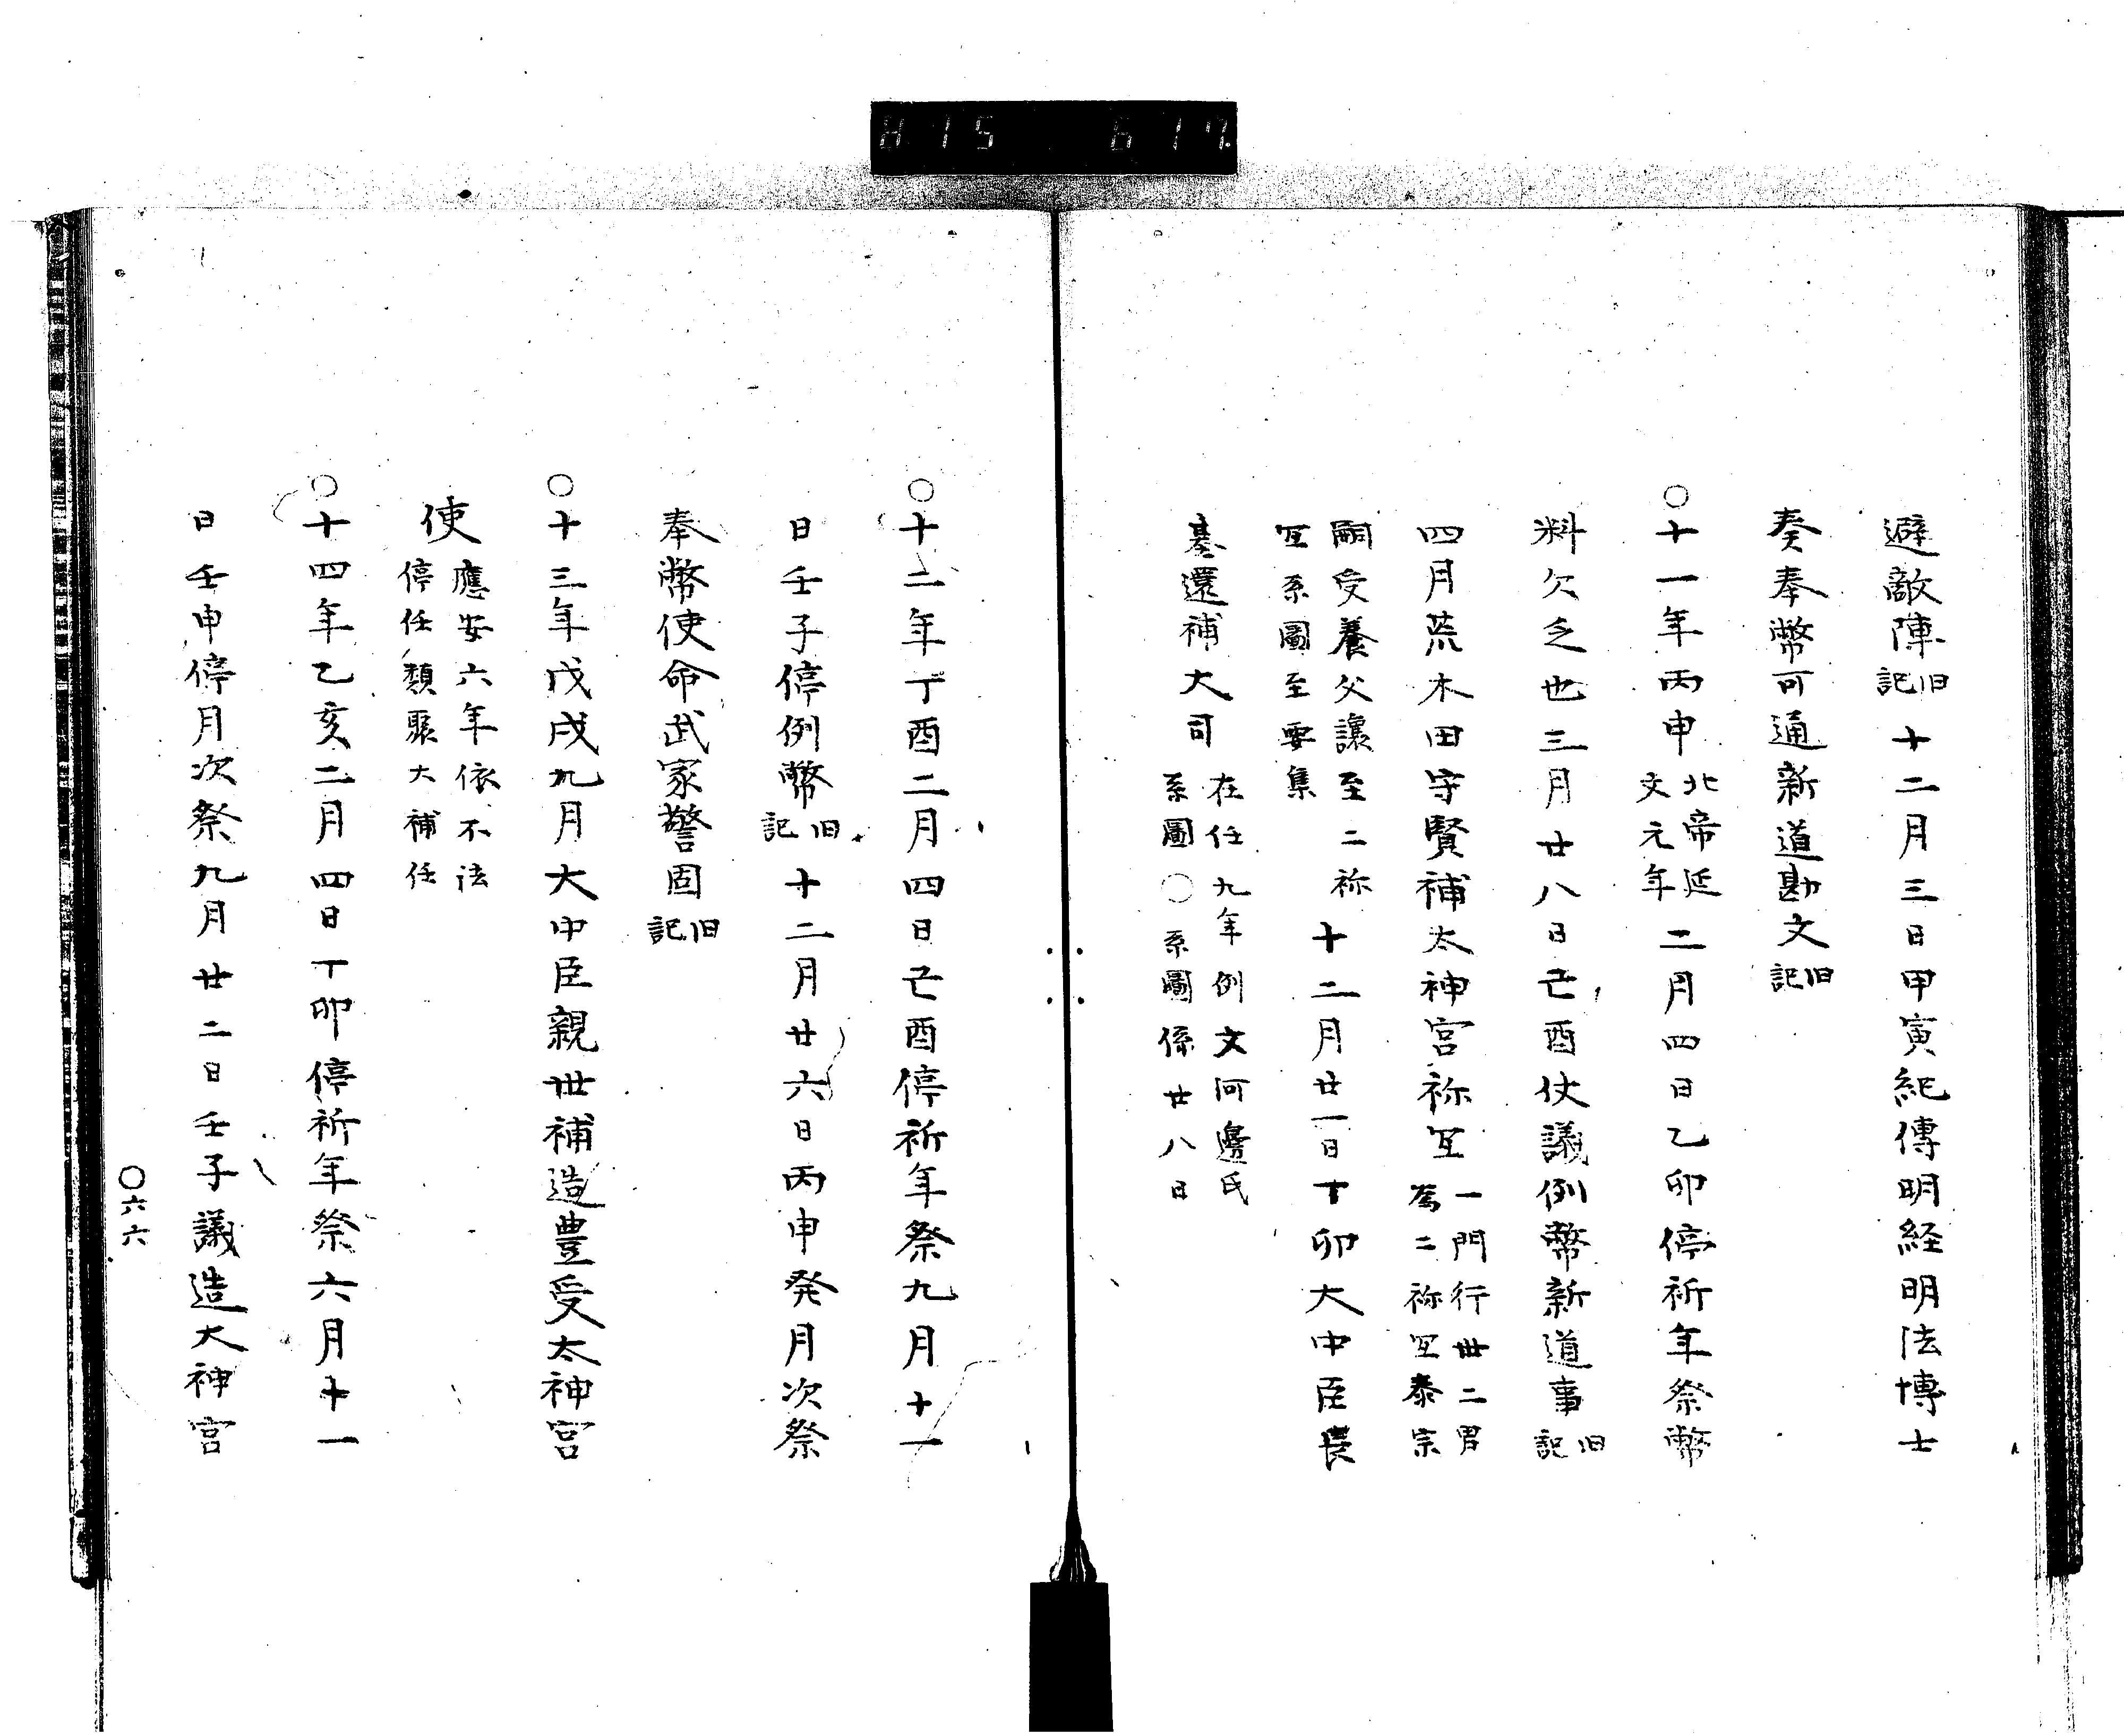 815 617
避敵陣旧記十二月三日甲寅紀傳明経明法博士
奏奉幣可通新道勘文旧記
○十一年丙申北帝延文元年二月四日乙卯停祈年祭幣
料欠乏也三月廿八日己酉仗議例幣新道事旧記
四月荒木田守賢補太神宮祢宜一門行世二男為二祢宜泰宗
嗣受養父讓至二祢宜系圖至要集十二月廿一日丁卯大中臣長
基還補大司在任九年例文河邊氏系圖○系圖係廿八日
○十二年丁酉二月四日己酉停祈年祭九月十一
日壬子停例幣旧記十二月廿六日丙申発月次祭
奉幣使命武家警固旧記
○十三年戊戌九月大中臣親世補造豊受太神宮
使應安六年依不法停任類聚大補任
○十四年乙亥二月四日丁卯停祈年祭六月十一
日壬申停月次祭九月廿二日壬子議造大神宮
○六六